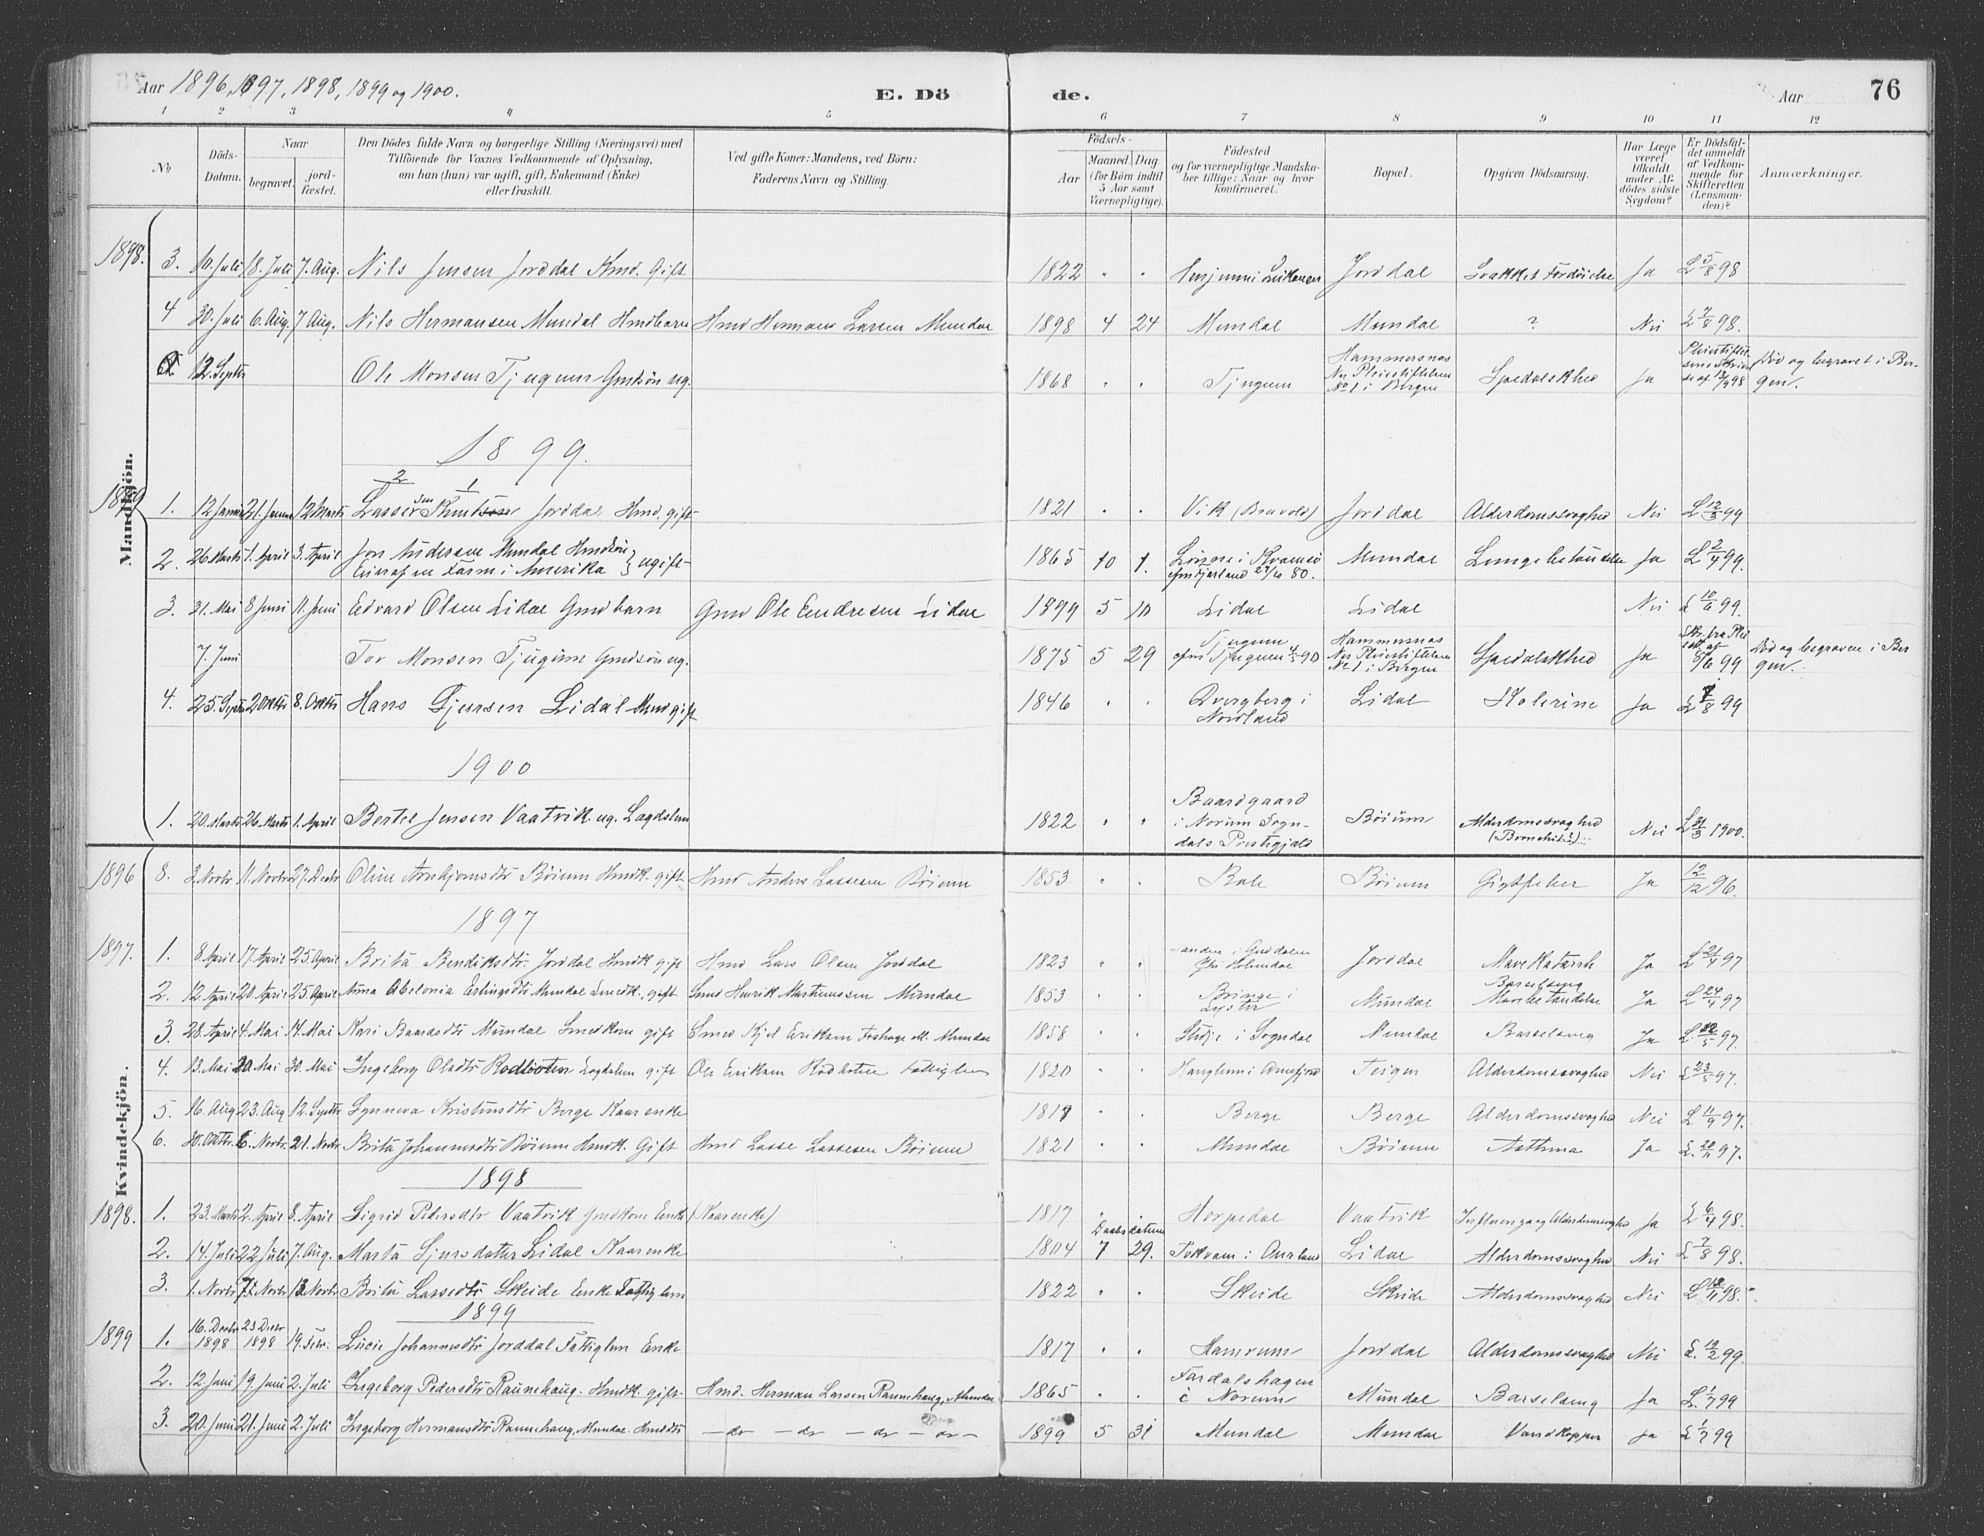 Aar 1896, 1897, 1898, 1899 og 1900.
E. Dö
de.
Aar
76
1 2 3 4 5 6 7 8 9 10 11 12
No
Döds-Datum.
Naar
begravet.
jordfæstet.
Den Dödes fulde Navn og borgerlige Stilling (Næringsvei) med
Tilföiende for Voxnes Vedkommende af Oplysning,
om han (hun) var ugift, gift, Enkemand (Enke)
eller fraskilt.
Ved gifte Koner: Mandens, ved Börn:
Faderens Navn og Stilling.
Födsels-
Aar
Maaned Dag
(for Börn indtil
5 Aar samt
Værnepligtige).
Födested
og for værnepligtige Mandska-
ber tillige: Naar og hvor
konfirmeret.
Bopæl.
Opgiven Dödsaarsag.
Har Læge
været
tilkaldt
under Af-
dödes sidste
Sygdom?
Er Dödsfal-
det anmeldt
af Vedkom-
mende for
Skifteretten
(Lensman-
den)?
Anmærkninger.
Mandkjön.
1898. 3. 16. Juli 18. Juli 7. Aug. Nils Jensen Jorddal Kmd. Gift 1822 " " Jorddal Ja L 5/8 98
4 30. Juli 6. Aug. 7 Aug. Nils Hermansen Mundal Hmdbarn Hmd Herman Larsen Mundal 1898 4 24 Mundal Mundal ? Nei L 7/8 98.
12. Septbr Ole Monsen Tjugum Gmdsön ug. 1868 " " Tjugum Hammersnæs Ny Pleiestiftelsen No 1 i Bergen Spedalskhed Ja Död og begravet i Bergen.
1899.
1899 1. 12 Januar 21. Januar 12 Marts Lasse Knutsen Jorddal Hmd. gift 1821 " " Vik Jorddal Alderdomssvaghed Nei L 12/3 99
2. 26 Marts 1. April 3. April Jon Andersen Mundal Hmdsön ugift
Eier af en Farm i Amerika 1865 10 1. Mundal Lungebetændelse Ja L 2/4 99.
3. 31. Mai 8 Juni 11. Juni Edvard Olsen Lidal Gmdbarn Gmd Ole Endresen Lidal 1899 5 10 Lidal Lidal Nei L 10/6 99.
7. Juni Tor Monsen Tjugum Gmdsön ug. 1875 5 29 Tjugum Hammersnæs Ny Pleiestiftelsen No 1 i Bergen Spedalskhed Ja Död og begraven i Bergen.
4. 25. Septbr 2 Oktbr 8. Oktbr Hans Gjursen Lidal gift 1846 " " Dvergberg i Nordland Lidal Kolerine Ja L 7/8 99
1900
1. 20. Marts 26. Marts 1. April Bertel Jensen Vaatvik ug. Lægdslem 1822 " " Baardgaard
i Norum Sogn-
dals Præstgjeld Böium Alderdomssvaghed Nei L 31/3 1900.
Kvindekjön.
1896 8. 2. Novbr 11. Novbr 27. Decbr Oline Arnbjornsdtr Böium Hmdk. gift Hmd Anders Lassesen Böium 1853 " " Bale Böium Gigtfeber Ja 12/12 96.
1897
1897. 1. 8. April 17. April 25. April Brita Bendiksdtr. Jorddal Hmdk gift Hmd Lars Olsen Jorddal 1823 " " Jorddal Mavekatarrh Ja L 21/4 97
2. 12. April 20. April 25. April Anna Abelonia Erlingsdtr Mundal Smedk. gift Smd Henrik Martinussen Mundal 1853 " " Bringe i Lyster Mundal Barselseng Mavebetændelse Ja L 24/4 97
3. 28. April 4. Mai 14. Mai Kari Baardsdtr Mundal Smedkone gift Smed Kjel Eriksen Mundal 1858 " " i Sogndal Mundal Barselseng Ja
4. 13. Mai 20. Mai 30. Mai Ingeborg Olsdtr Rödbotten Lægdslem gift Ole Eriksen Rödbotten Fattiglem 1820 " " Teigen Alderdomssvaghed Nei L 23/5 97.
5. 16. Aug 23. Aug 12. Septbr Synneva Kristensdtr Berge Kaarenke 1817 " " Berge Berge Alderdomssvaghed Nei L 11/9 97.
6. 30. Oktbr. 6. Novbr. 21. Novbr Brita Johannesdtr Böium Hmdk. Gift Hmd Lasse Lassesen Böium 1821 " " Mundal Böium Asthma Ja L. 20/11 97.
1898
1898. 1. 23. Marts 2. April 8. April Sigrid Pedersdtr Vaatvik Enke (Kaarenke) 1817 " " Horpedal Vaatvik Influenza og Alderdomssvaghed Ja L 6/4 98.
Daabsdatum
2. 14. Juli 22. Juli 7. Aug. Marta Gjursdatter Lidal Kaarenke 1804 7 29. i Aurland Lidal Alderdomssvaghed Nei L 7/8 98.
3. 1. Novbr 7. Novbr 13. Novbr Brita Lassedtr Skeide Enke Fattiglem 1822 " " Skeide Skeide Alderdomssvaghed Nei
1899
1899 1. 16. Decbr 1898 23 Decbr 1898 19. Febr. Lucie Johannesdtr Jorddal Fattiglem Enke 1817 " " Hamrum Jorddal Alderdomssvaghed Nei
2. 12 Juni 19. Juni 2. Juli Ingeborg Pedersdtr Raunehaug. Hmdk. gift Hmd. Herman Larsen Raunehaug, Mundal 1865 " " Fardalshagen i Norum Mundal Barselseng Ja L. 1/7 99
3. 20. Juni 21. Juni 2. Juli Ingeborg Hermansdtr Raunehaug, Mundal. Hmdsdtr — do — do — do — do — 1899 5 31 Mundal Mundal Vandkopper Ja L 1/7 99